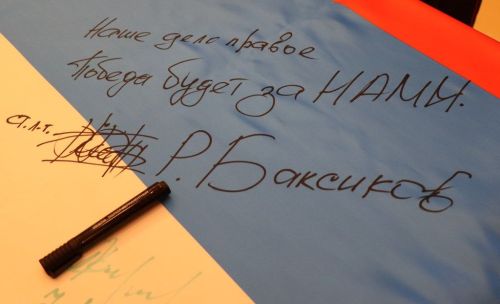 Наше дело правое
Победа будет за НАМИ.
ст.л-т. Р. Баксиков